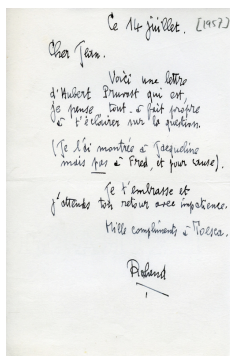 Ce 14 juillet. [1957]
Cher Jean.
Voici une lettre
d'Hubert Pruvost qui est,
je pense tout à fait propre
à t'éclairer sur la question.
(Je l'ai montrée à Jacqueline
mais pas à Fred, et pour cause).
Je t'embrasse et
j'attends ton retour avec impatience.
Mille compliments à
Roland